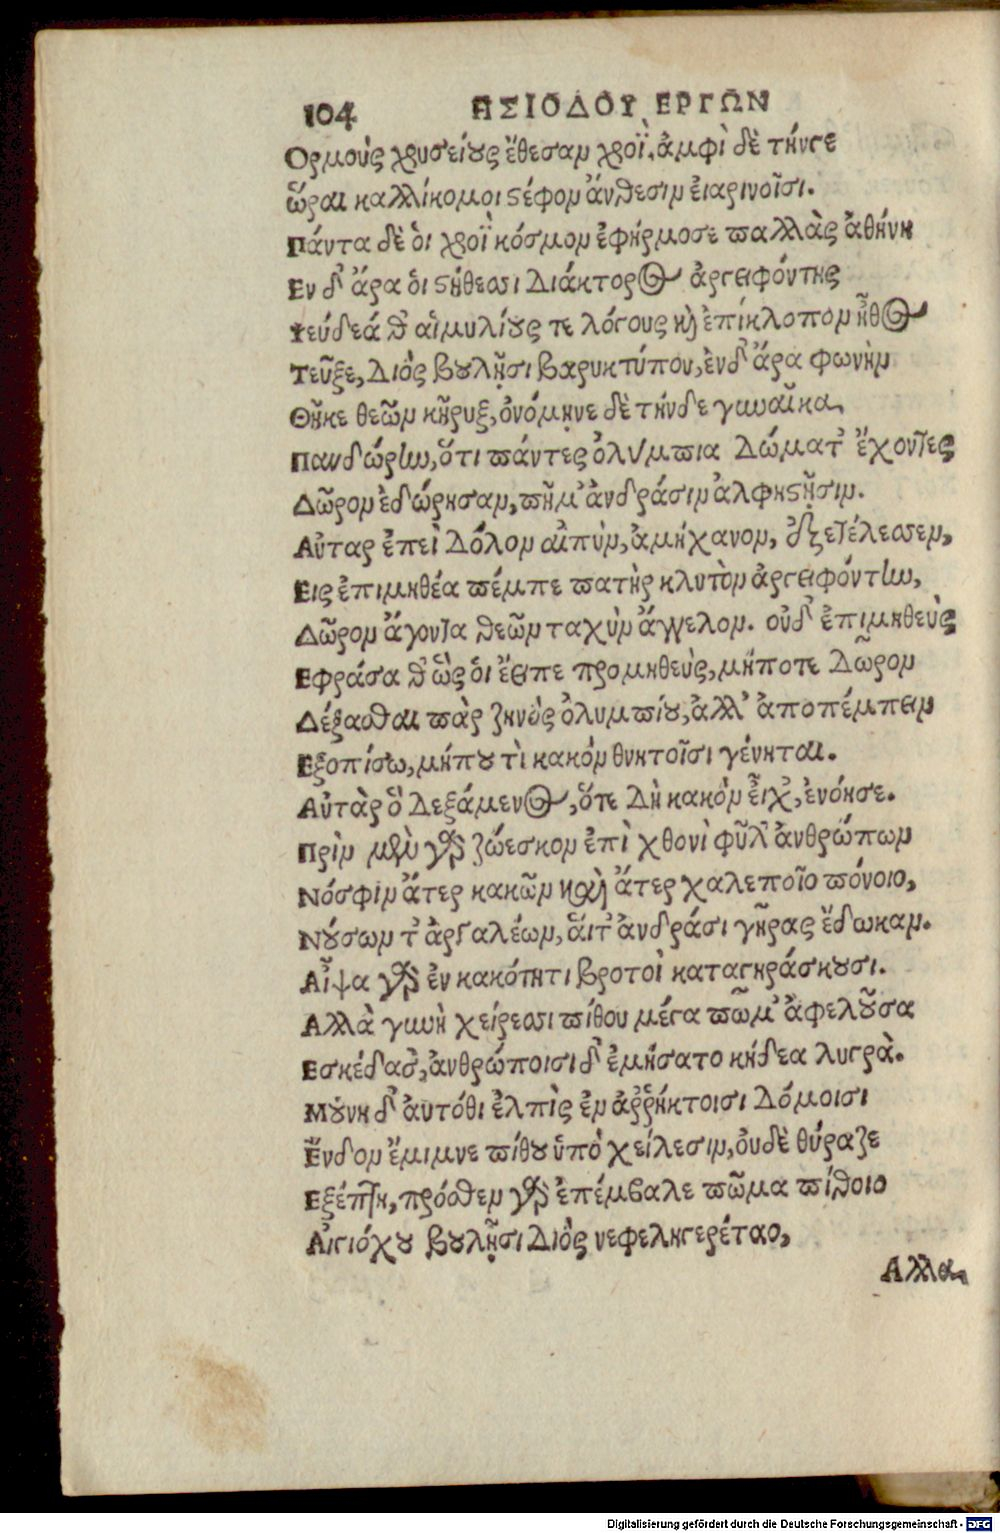 104 ΗΣΙΟΔΟΥ ΕΡΓΩΝ
Ορμοὺς χρυσείους ἔθεσαν χροΐ, ἀμφὶ δὲ τήνγε
ὧραι καλλίκομοι στέφον ἄνθεσιν εἰαρινοῖσι.
Πάντα δὲ ὁι χροῒ κόσμον ἐφήρμοσε παλλὰς ἀθήνη
Εν δ' ἄρα ὁι στήθεσσι Διάκτορος ἀργειφόντης
Ψεύδεά θ' αἱμυλίους τε λόγους καὶ ἐπίκλοπον ἦθος
Τεῦξε, Διὸς βουλῇσι βαρυκτύπου, ἐνδ' ἄρα φωνὴν
Θῆκε θεῶν κῆρυξ, ὀνόμῃνε δὲ τήνδε γυναῖκα
Πανδώρην, ὅτι πάντες ὀλύμπια Δώματ' ἔχοντες
Δῶρον ἐδώρησαν, πῆμ' ἀνδράσιν ἀλφηστῇσιν.
Αὐταρ ἐπεὶ Δόλον αἰπὺν, ἀμήχανον, ἐξετέλεσσεν,
Εις ἐπιμηθέα πέμπε πατὴρ κλυτὸν ἀργειφόντην,
Δῶρον ἄγοντα θεῶν ταχὺν ἄγγελον. οὐδ' ἐπιμηθεὺς
Εφράσαθ' ὥς ὁι ἔειπε προμηθεὺς, μήποτε Δῶρον
Δέξασθαι πὰρ ζηνὸς ὀλυμπίου, ἀλλ' ἀποπέμπειν
Εξοπίσω, μήπου τὶ κακὸν θνητοῖσι γένηται.
Αὐτὰρ ὃ Δεξάμενος, ὅτε Δὴ κακὸν εἶχ', ἐνόησε.
Πρὶν μὲν γὰρ ζώεσκον ἐπὶ χθονὶ φῦλ' ἀνθρώπων
Νόσφιν ἄτερ κακῶν καὶ ἄτερ χαλεποῖο πόνοιο,
Νούσων τ' ἀργαλέων, ἅιτ' ἀνδράσι γῆρας ἔδωκαν.
Αἶψα γὰρ ἐν κακότητι βροτοὶ καταγηράσκουσι.
Αλλὰ γυνὴ χείρεσσι πίθου μέγα πῶμ' ἀφελοῦσα
Εσκέδασ', ἀνθρώποισι δ' ἐμήσατο κήδεα λυγρὰ.
Μούνη δ' ἀυτόθι ἐλπὶς ἐν ἀῤῥήκτοισι Δόμοισι
Ἔνδον ἔμιμνε πίθου ὑπὸ χείλεσιν, οὐδὲ θύραζε
Εξέπτη, πρόσθεν γὰρ ἐπέμβαλε πῶμα πίθοιο
Αἰγιόχου βουλῇσι Διὸς νεφεληγερέταο,
Αλλα
Digitalisierung gefördert durch die Deutsche Forschungsgemeinschaft - DFG